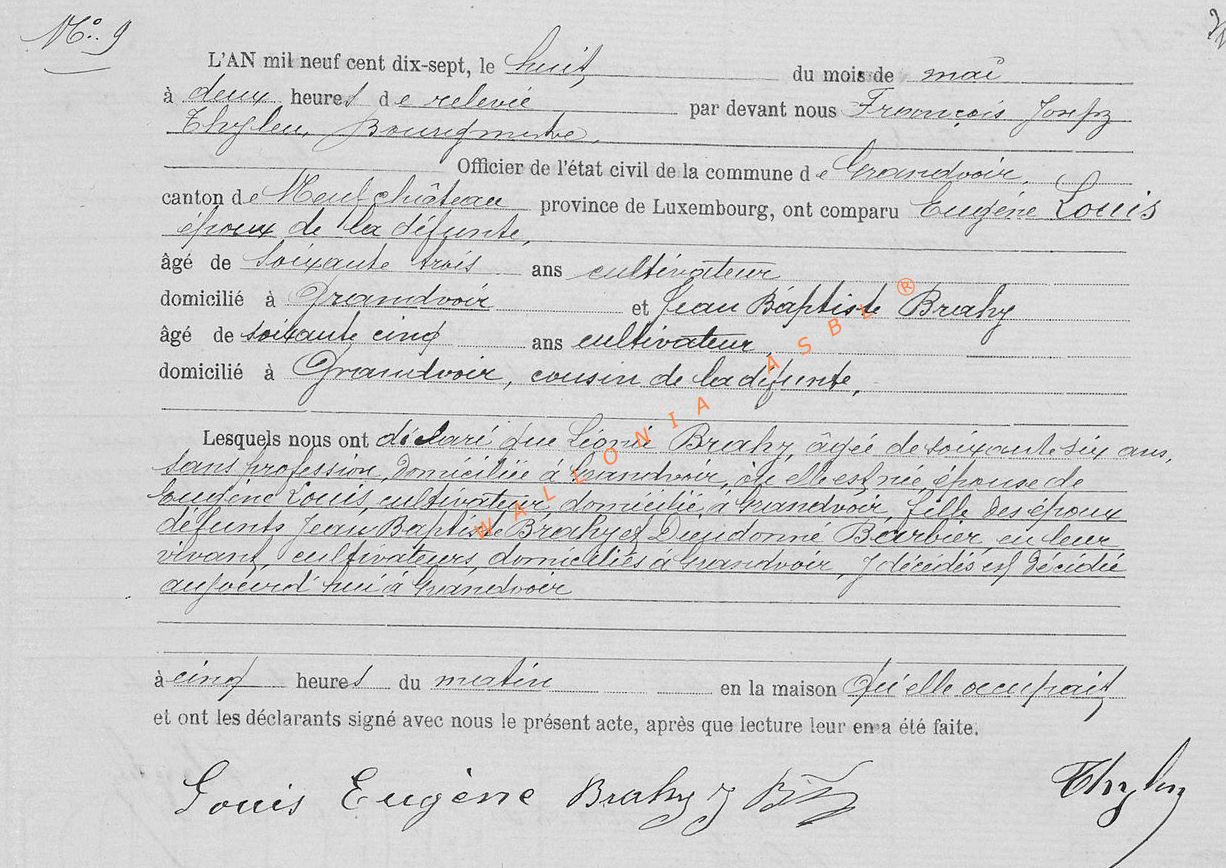 No. 9
L'AN mil neuf cent dix-sept, le huit du mois de mai
à deux heures de relevée par devant nous François Joseph
Thyleu, Bourgmestre,
Officier de l'état civil de la commune de Grandvoir,
canton de Neufchâteau province de Luxembourg, ont comparu Eugène Louis
époux de la défunte,
âgé de soixante trois ans cultivateur
domicilié à Grandvoir et Jean Baptiste Brahy
âgé de soixante cinq ans cultivateur,
domicilié à Grandvoir, cousin de la défunte,
Lesquels nous ont déclaré que Léonie Brahy, âgée de soixante six ans,
sans profession, domiciliée à Grandvoir, où elle est née, épouse de
Eugène Louis, cultivateur, domicilié à Grandvoir, fille des époux
défunts Jean Baptiste Brahy et Dieudonné Barbier, en leur
vivant, cultivateurs, domiciliés à Grandvoir, y décédés est décédée
aujourd'hui à Grandvoir
à cinq heures du matin en la maison qu'elle occupait
et ont les déclarants signé avec nous le présent acte, après que lecture leur en a été faite.
Louis Eugène Brahy J Bte
WALLONIA ASBL ®